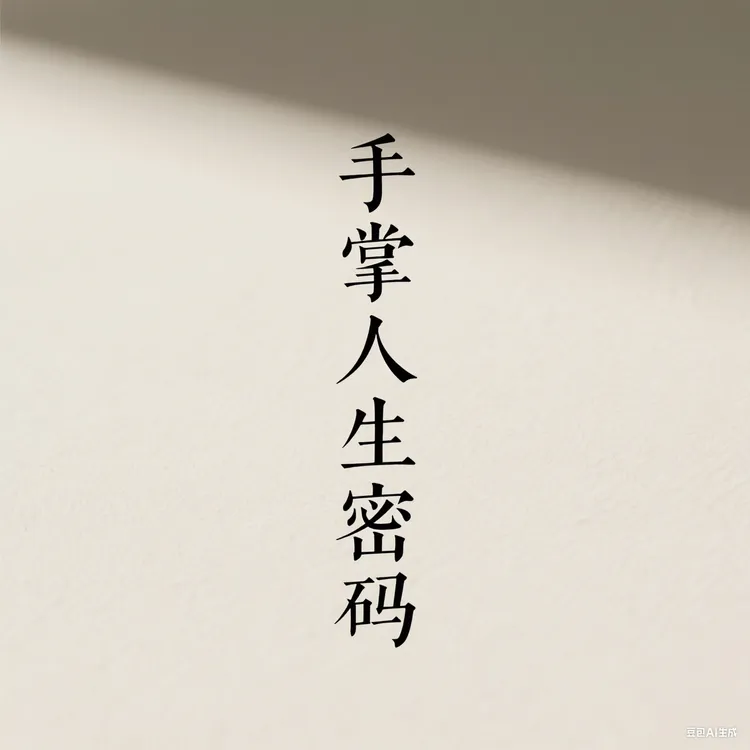 手掌人生密码
豆包AI生成